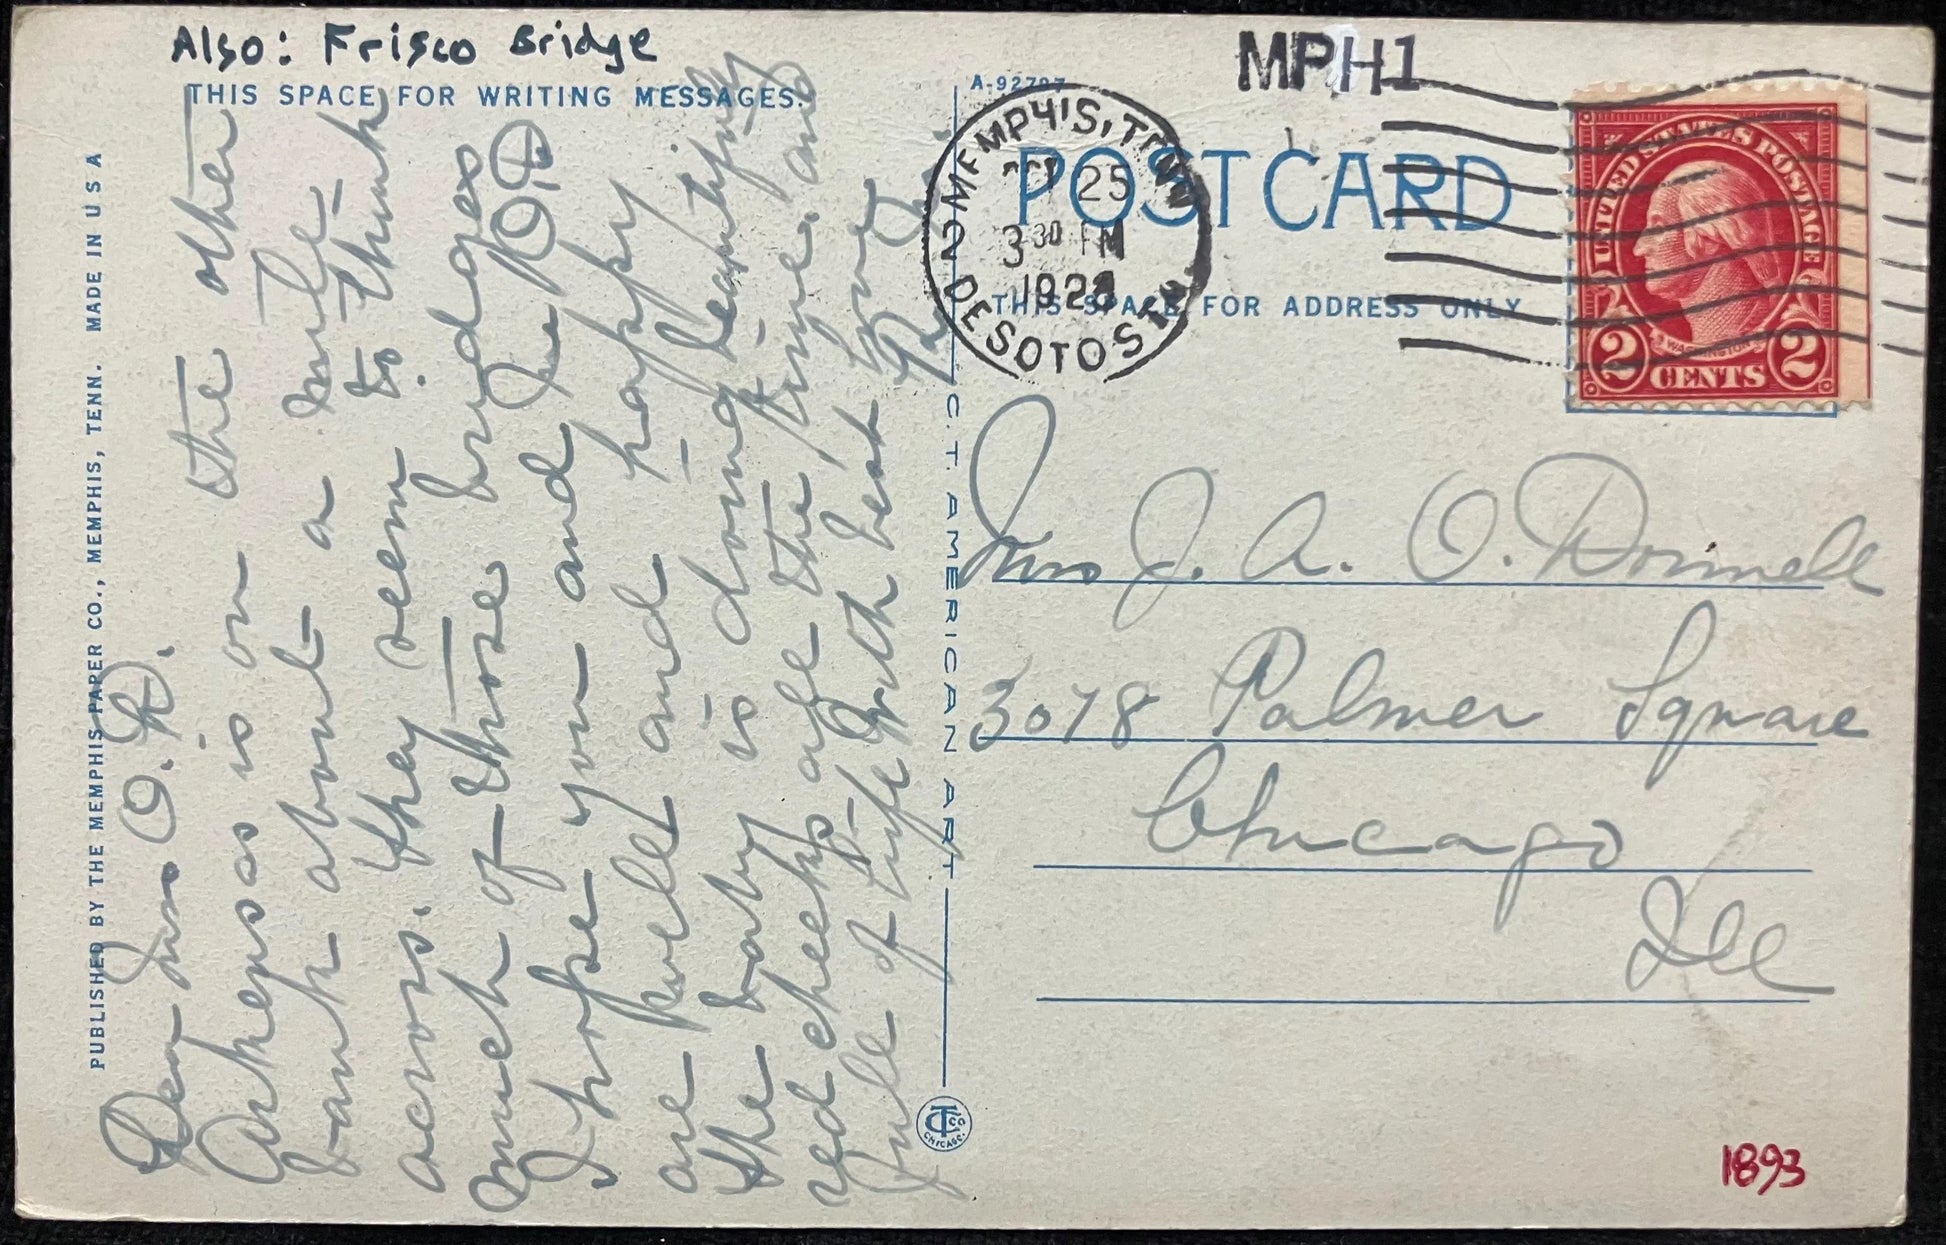 Also: Frisco Bridge
THIS SPACE FOR WRITING MESSAGES.
PUBLISHED BY THE MEMPHIS PAPER CO., MEMPHIS, TENN. MADE IN U S A
Dear Mrs O. D.
Arkensas is on the other
bank about a mile
across. They seem to think
much of those bridges
I hope you and Mr O.D.
are well and happy
the baby is doing beautifully
red cheeks all the time and
full of life With best love
A-92797
C.T. AMERICAN ART
CT CO
CHICAGO.
MPH1
MEMPHIS, TENN
OCT 25
3 30 PM
192
DESOTO STA.
2
POST CARD
THIS SPACE FOR ADDRESS ONLY
UNITED STATES POSTAGE
WASHINGTON
2 CENTS 2
Mrs J. A. O. Donnell
3078 Palmer Square
Chicago
Ill
1893